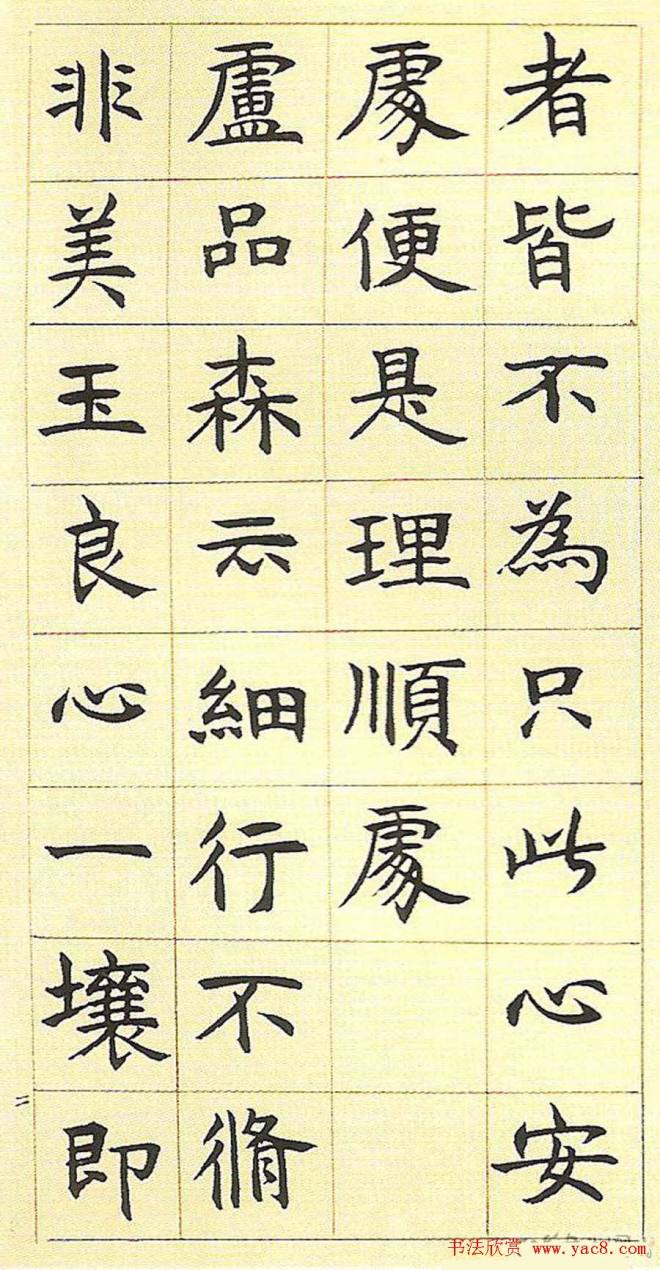 者皆不為只此心安
處便是理順處
盧品森云細行不脩
非美玉良心一壞即
二
书法欣赏 www.yac8.com